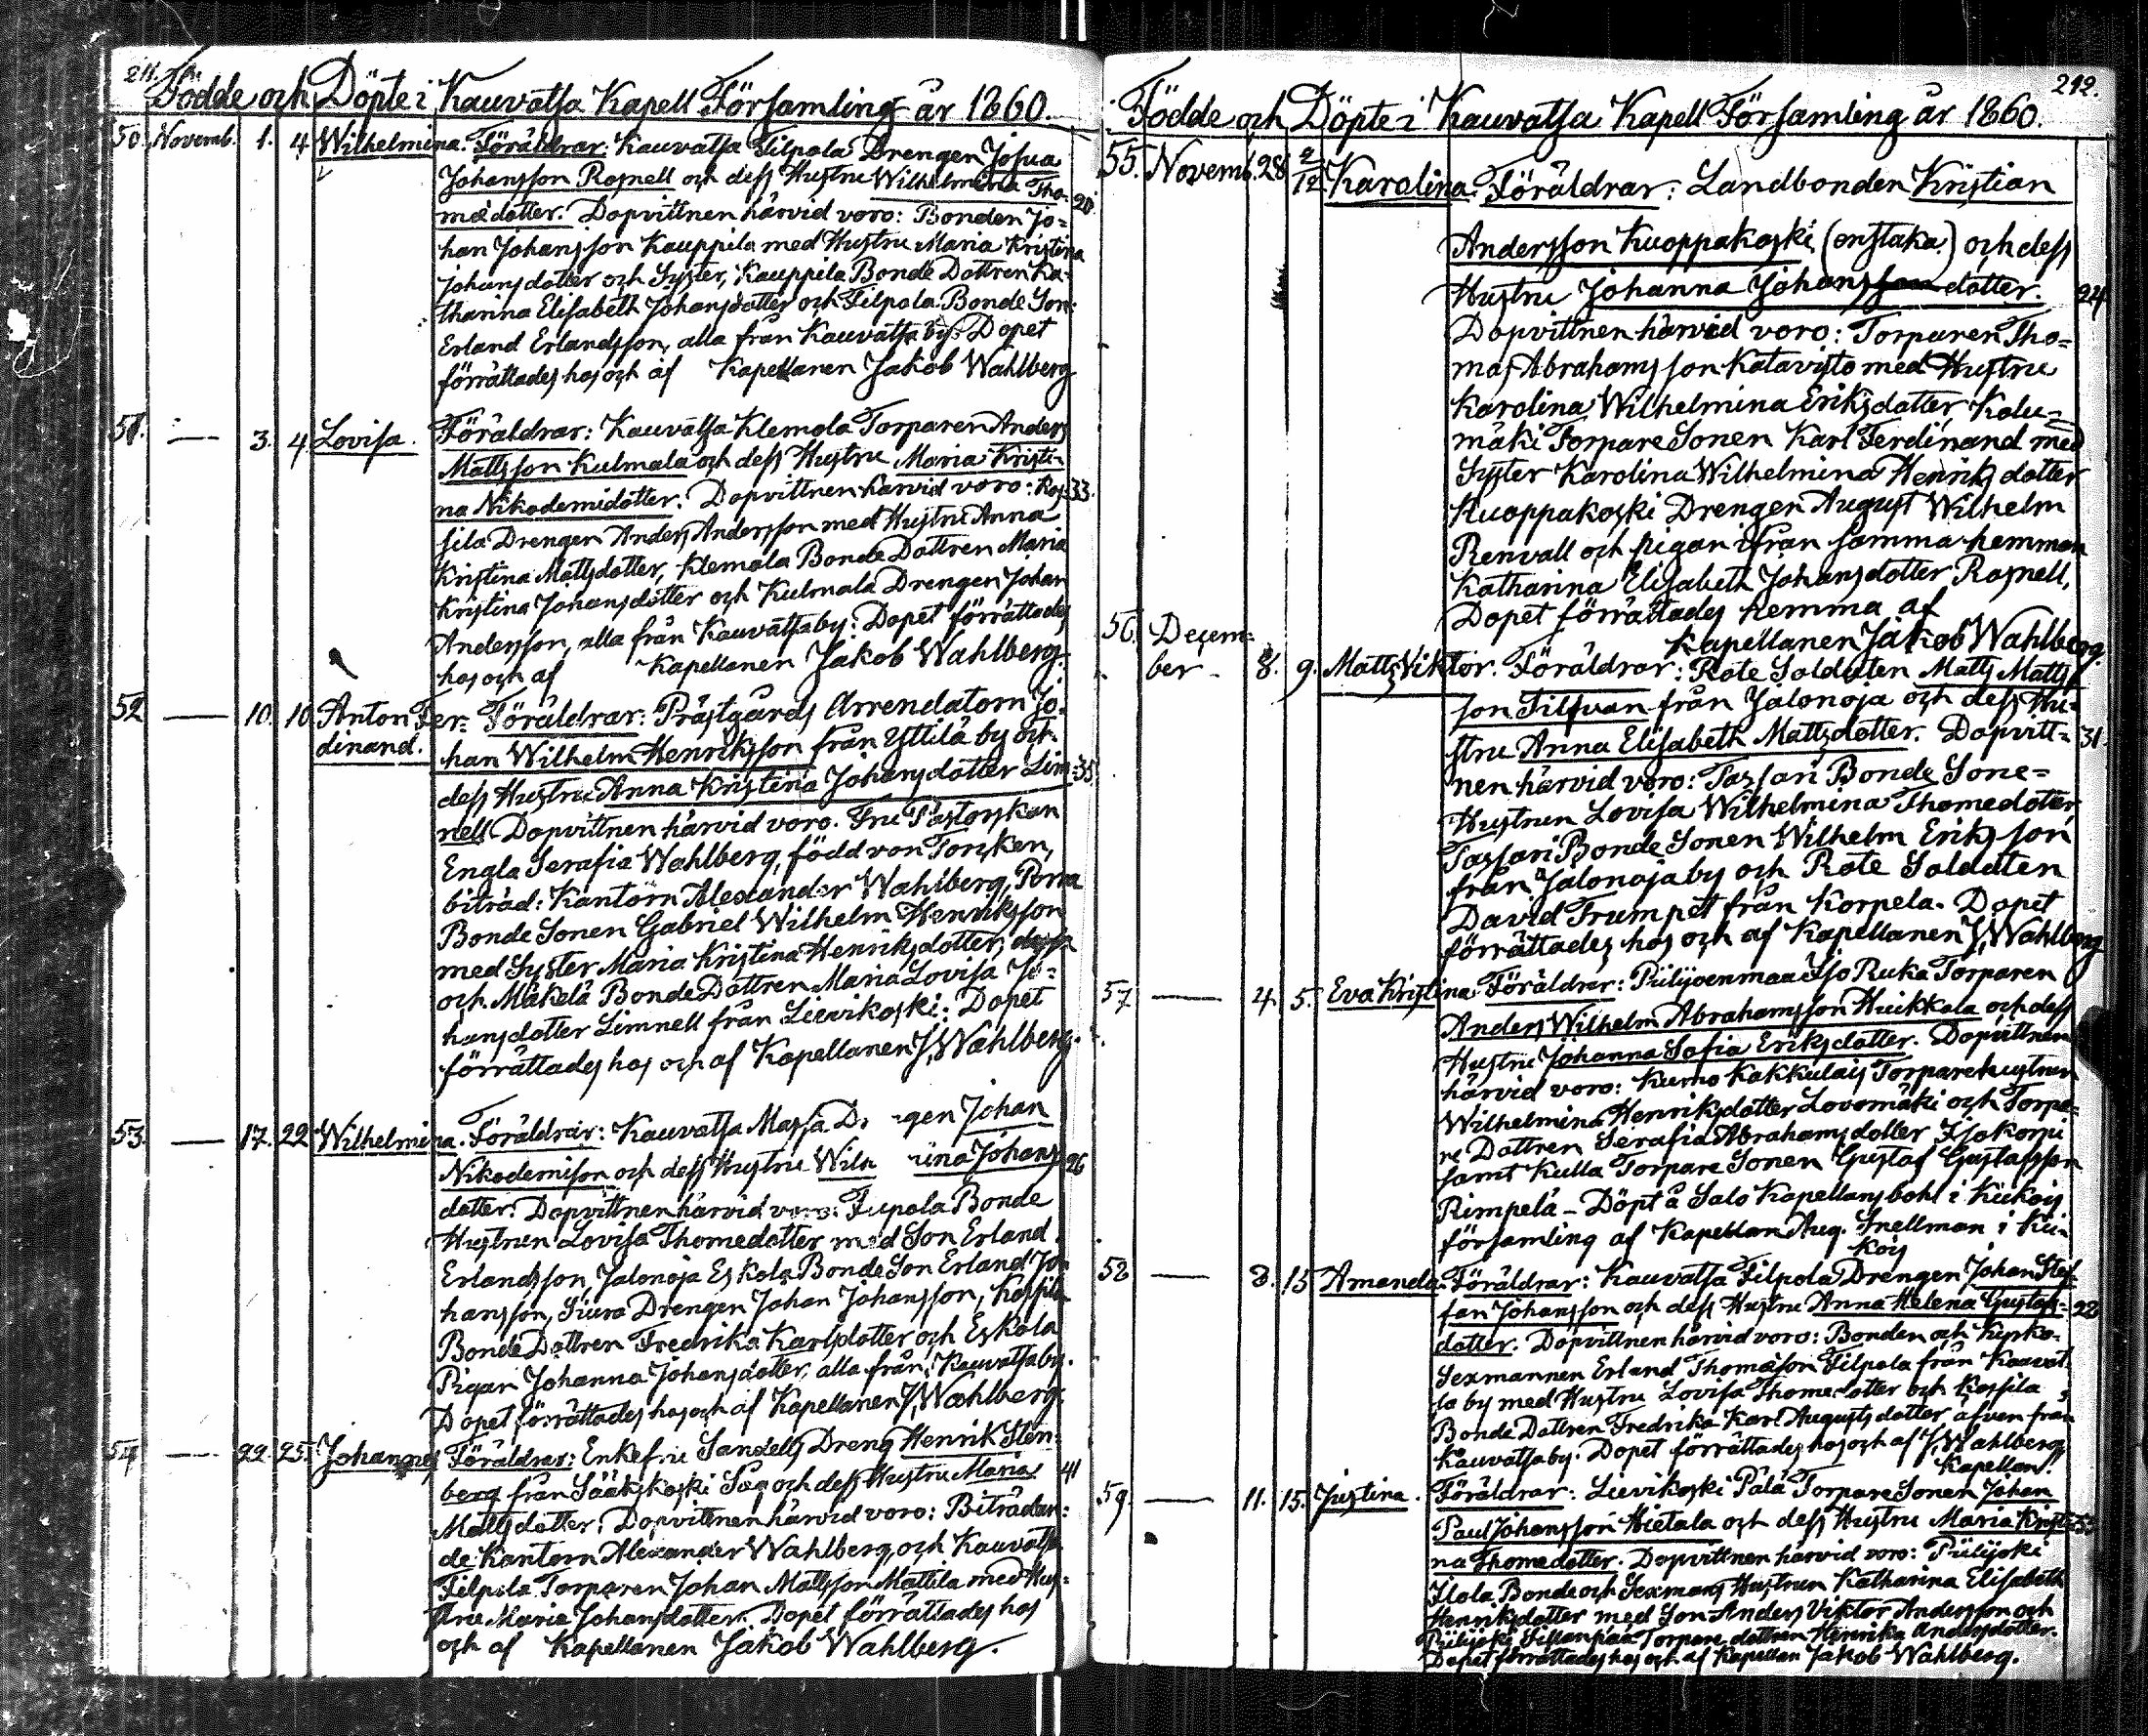 211.
Födde och Döpte i Kauvatsa Kapell Församling år 1860.
50. Novemb. 1. 4 Wilhelmina. Föräldrar: Kauvatsa Filpola Drengen Josua
Johansson Rosnell och dess Hustru Wilhelmina Tho-
mædotter. Dopvittnen härvid voro: Bonden Jo= 20.
han Johansson Kauppila med Hustru Maria Kristina
Johansdotter och Syster, Kauppila Bonde Dottren Ka-
tharina Elisabeth Johansdotter och Filpola Bonde Son:
Erland Erlandsson, alla från Kauvatsa by. Dopet
förrättades hos och af Kapellanen Jakob Wahlberg
51. — 3. 4. Lovisa. Föräldrar: Kauvatsa Klemola Torparen Anders
Mattsson Kulmala och dess Hustru Maria Kristi-
na Nikodemidotter. Dopvittnen härvid voro: Kos- 33.
sila Drengen Anders Andersson med Hustru Anna
Kristina Mattsdotter, Klemola Bonde Dottren Maria
Kristina Johansdotter och Kulmala Drengen Johan
Andersson, alla från Kauvatsa by. Dopet förrättades
hos och af Kapellanen Jakob Wahlberg.
52 — 10. 10 Anton Fer= Föräldrar: Prästgårds Arrendatorn Jo-
dinand. han Wilhelm Henriksson från Yttilä by och
dess Hustru Anna Kristina Johansdotter Lim- 35.
nell. Dopvittnen härvid voro. Fru Pastorskan
Engla Serafia Wahlberg, född von Torcken,
biträd: Kantorn Alexander Wahlberg,
Bonde Sonen Gabriel Wilhelm Henriksson
med Syster Maria Kristina Henriksdotter,
och Mäkelä Bonde Dottren Maria Lovisa Jo=
hansdotter Limnell från Lievikoski. Dopet
förrättades hos och af Kapellanen J. Wahlberg.
53. — 17. 22 Wilhelmina. Föräldrar: Kauvatsa Massa D gen Johan
Nikodemisson och dess Hustru Wilh ina Johans 26
dotter. Dopvittnen härvid voro: Bonde
Hustrun Lovisa Thomedotter med Son Erland
Erlandsson, Jalonoja Eskola Bonde Son Erland Jo-
hansson, Drengen Johan Johansson, Kossila
Bonde Dottren Fredrika Karlsdotter och Eskola
Pigan Johanna Johansdotter, alla från Kauvatsa by.
Dopet förrättades hos och af Kapellanen J. Wahlberg.
54 — 22. 25. Johannes Föräldrar: Enkefru Sandells Dreng Henrik Sten-
berg från Sääkskoski Såg och dess Hustru Maria 41
Mattsdotter. Dopvittnen härvid voro: Biträdan:
de Kantorn Alexander Wahlberg, och Kauvatsa
Filpola Torparen Johan Mattsson Mattila med Hus=
tru Maria Johansdotter. Dopet förrättades hos
och af Kapellanen Jakob Wahlberg.
212.
Födde och Döpte i Kauvatsa Kapell Församling år 1860.
55. Novemb. 28 2/12 Karolina. Föräldrar: Landbonden Kristian
Andersson Kuoppakoski (enstaka) och dess
Hustru Johanna Johansson dotter. 24
Dopvittnen härvid voro: Torparen Tho=
mas Abrahamsson Katavisto med Hustru
Karolina Wilhelmina Eriksdotter, Kalu=
mäki Torpare Sonen Karl Ferdinand med
Syster Karolina Wilhelmina Henriksdotter
Kuoppakoski Drengen August Wilhelm
Renvall och Pigan ifrån samma hemman
Katharina Elisabeth Johansdotter Rosnell,
Dopet förrättades hemma af
Kapellanen Jakob Wahlberg.
56. Decem=
ber 8. 9. Matts Viktor. Föräldrar: Rote Soldaten Matts Matts
son Tilfvan från Jalonoja och dess Hu-
stru Anna Elisabeth Mattsdotter. Dopvitt= 31.
nen härvid voro: Tassari Bonde Sone=
Hustrun Lovisa Wilhelmina Thomedoter,
Tassari Bonde Sonen Wilhelm Eriksson
från Jalonoja by och Rote Soldaten
David Trumpet från Korpela. Dopet
förrättades hos och af Kapellanen J. Wahlberg
57 — 4. 5. Eva Kristina. Föräldrar: Piilijoenmaa Iso Ruka Torparen
Anders Wilhelm Abrahamsson Huikkala och dess
Hustru Johanna Sofia Eriksdotter. Dopvittnen
härvid voro: Kumo Kakkulais Torparehustrun
Wilhelmina Henriksdotter Lovomäki och Torpa=
re Dottren Serafia Abrahamsdotter Isokorpi
samt Kulla Torpare Sonen Gustaf Gustafsson
Rimpelä – Döpt å Salo Kapellansbohl i Kiikois
församling af Kapellan Aug. Snellman i Kii-
kois
58 — 8. 15 Amanda. Föräldrar: Kauvatsa Filpola Drengen Johan Stef-
fan Johansson och dess Hustru Anna Helena Gustafs= 22
dotter. Dopvittnen härvid voro: Bonden och Kyrko-
Sexmannen Erland Thomasson Filpola från Kauvat-
sa by med Hustru Lovisa Thomedotter och Kossila
Bonde Dottren Fredrika Karl Augustsdotter äfven från
Kauvatsa by. Dopet förrättades hos och af J. Wahlberg
Kapellan.
59. — 11. 15. Justina. Föräldrar: Lievikoski Pälä Torpare Sonen Johan
Paul Johansson Hietala och dess Hustru Maria Kristi- 33
na Thomedotter. Dopvittnen härvid voro: Piilijoki
Ilola Bonde och Sexmans Hustrun Katharina Elisabeth
Henriksdotter med Son Anders Viktor Andersson och
Piilijoki Sillanpää Torpare dottren Henrika Andersdotter.
Dopet förrättades hos och af Kapellan Jakob Wahlberg.